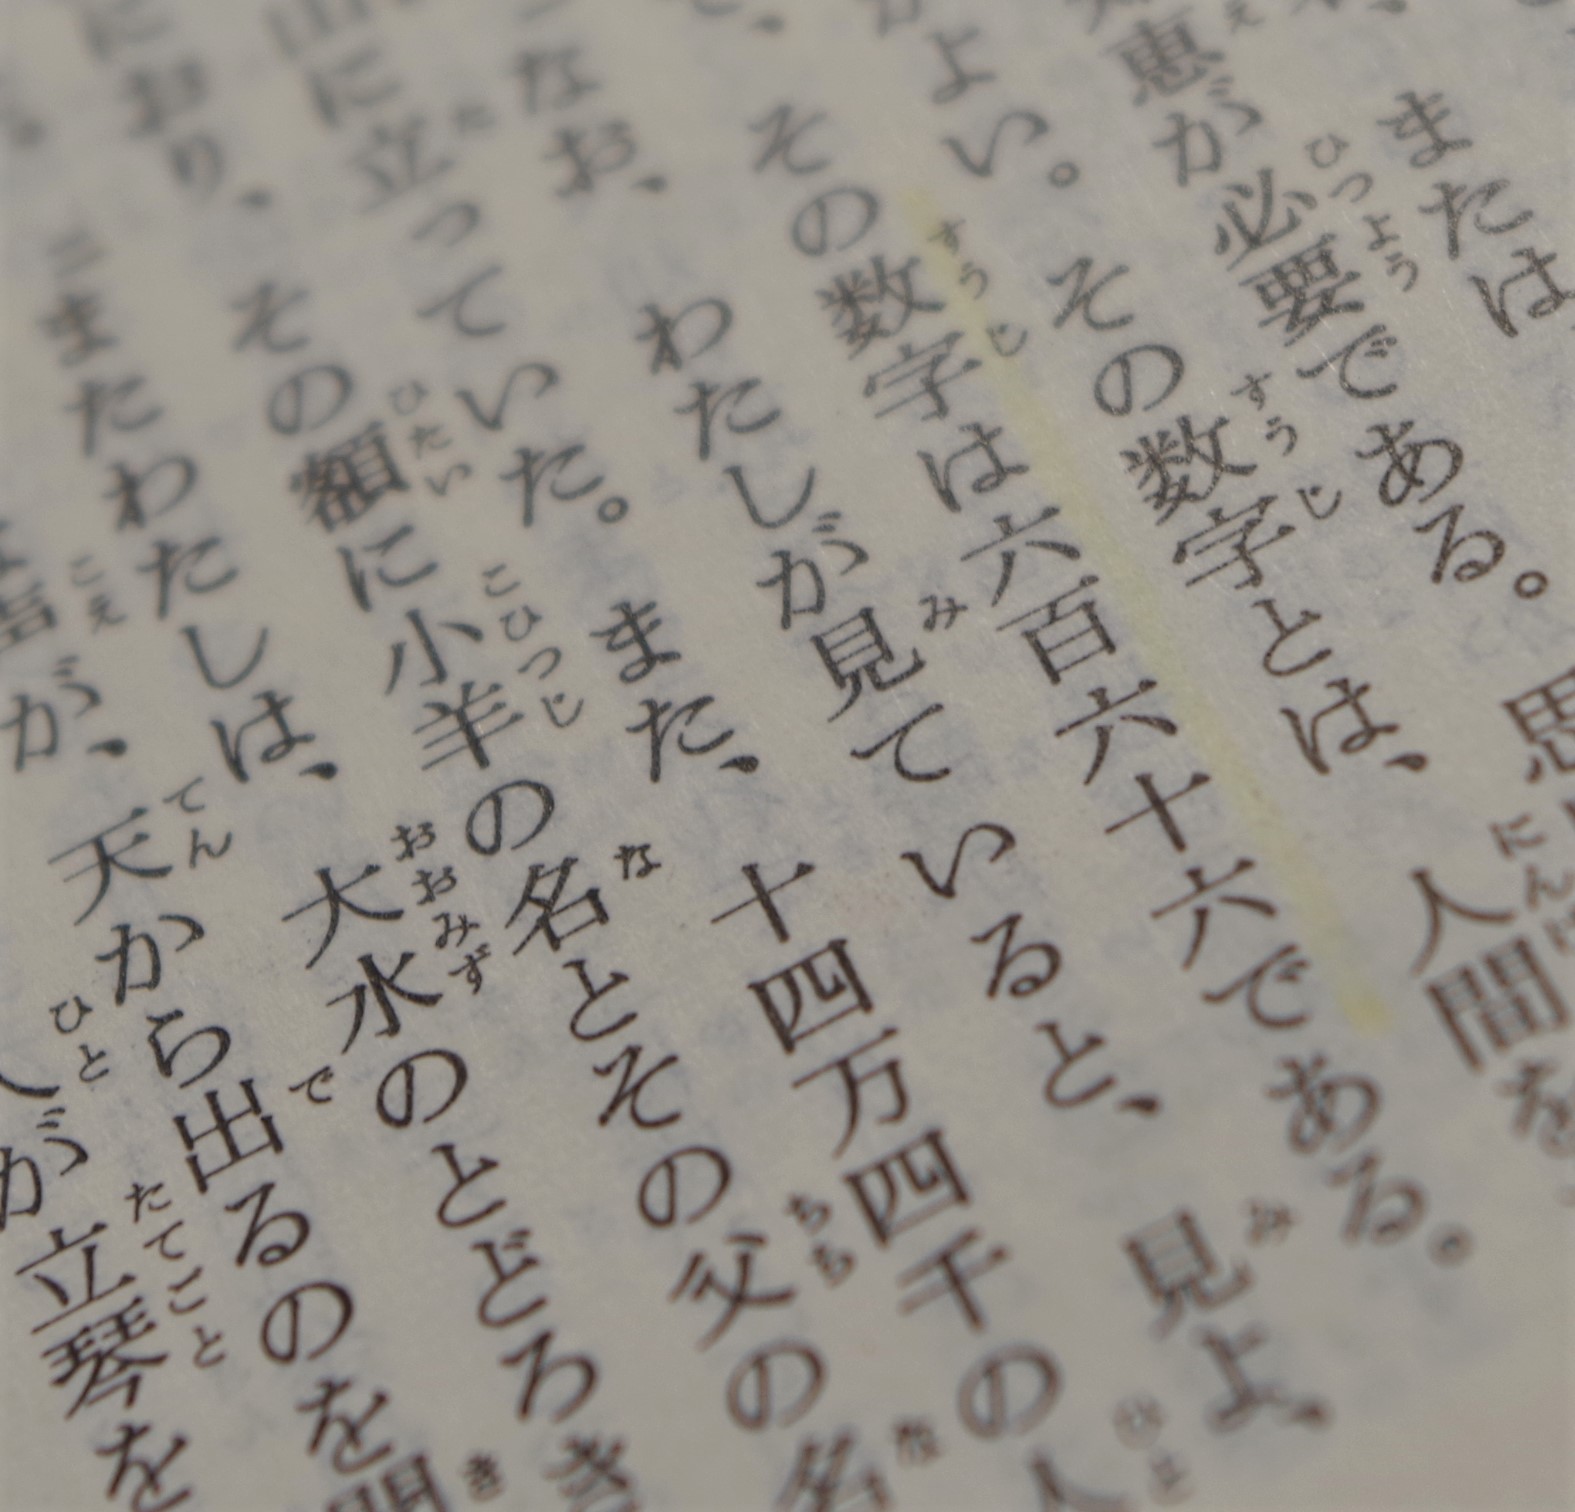 または
恵が必要である。思
よい。その数字とは、人間を
その数字は六百六十六である。
なお、わたしが見ていると、見よ、
に立っていた。また、十四万四千の人
におり、その額に小羊の名とその父の名
またわたしは、大水のとどろき
声が、天から出るのを聞
人が立琴を